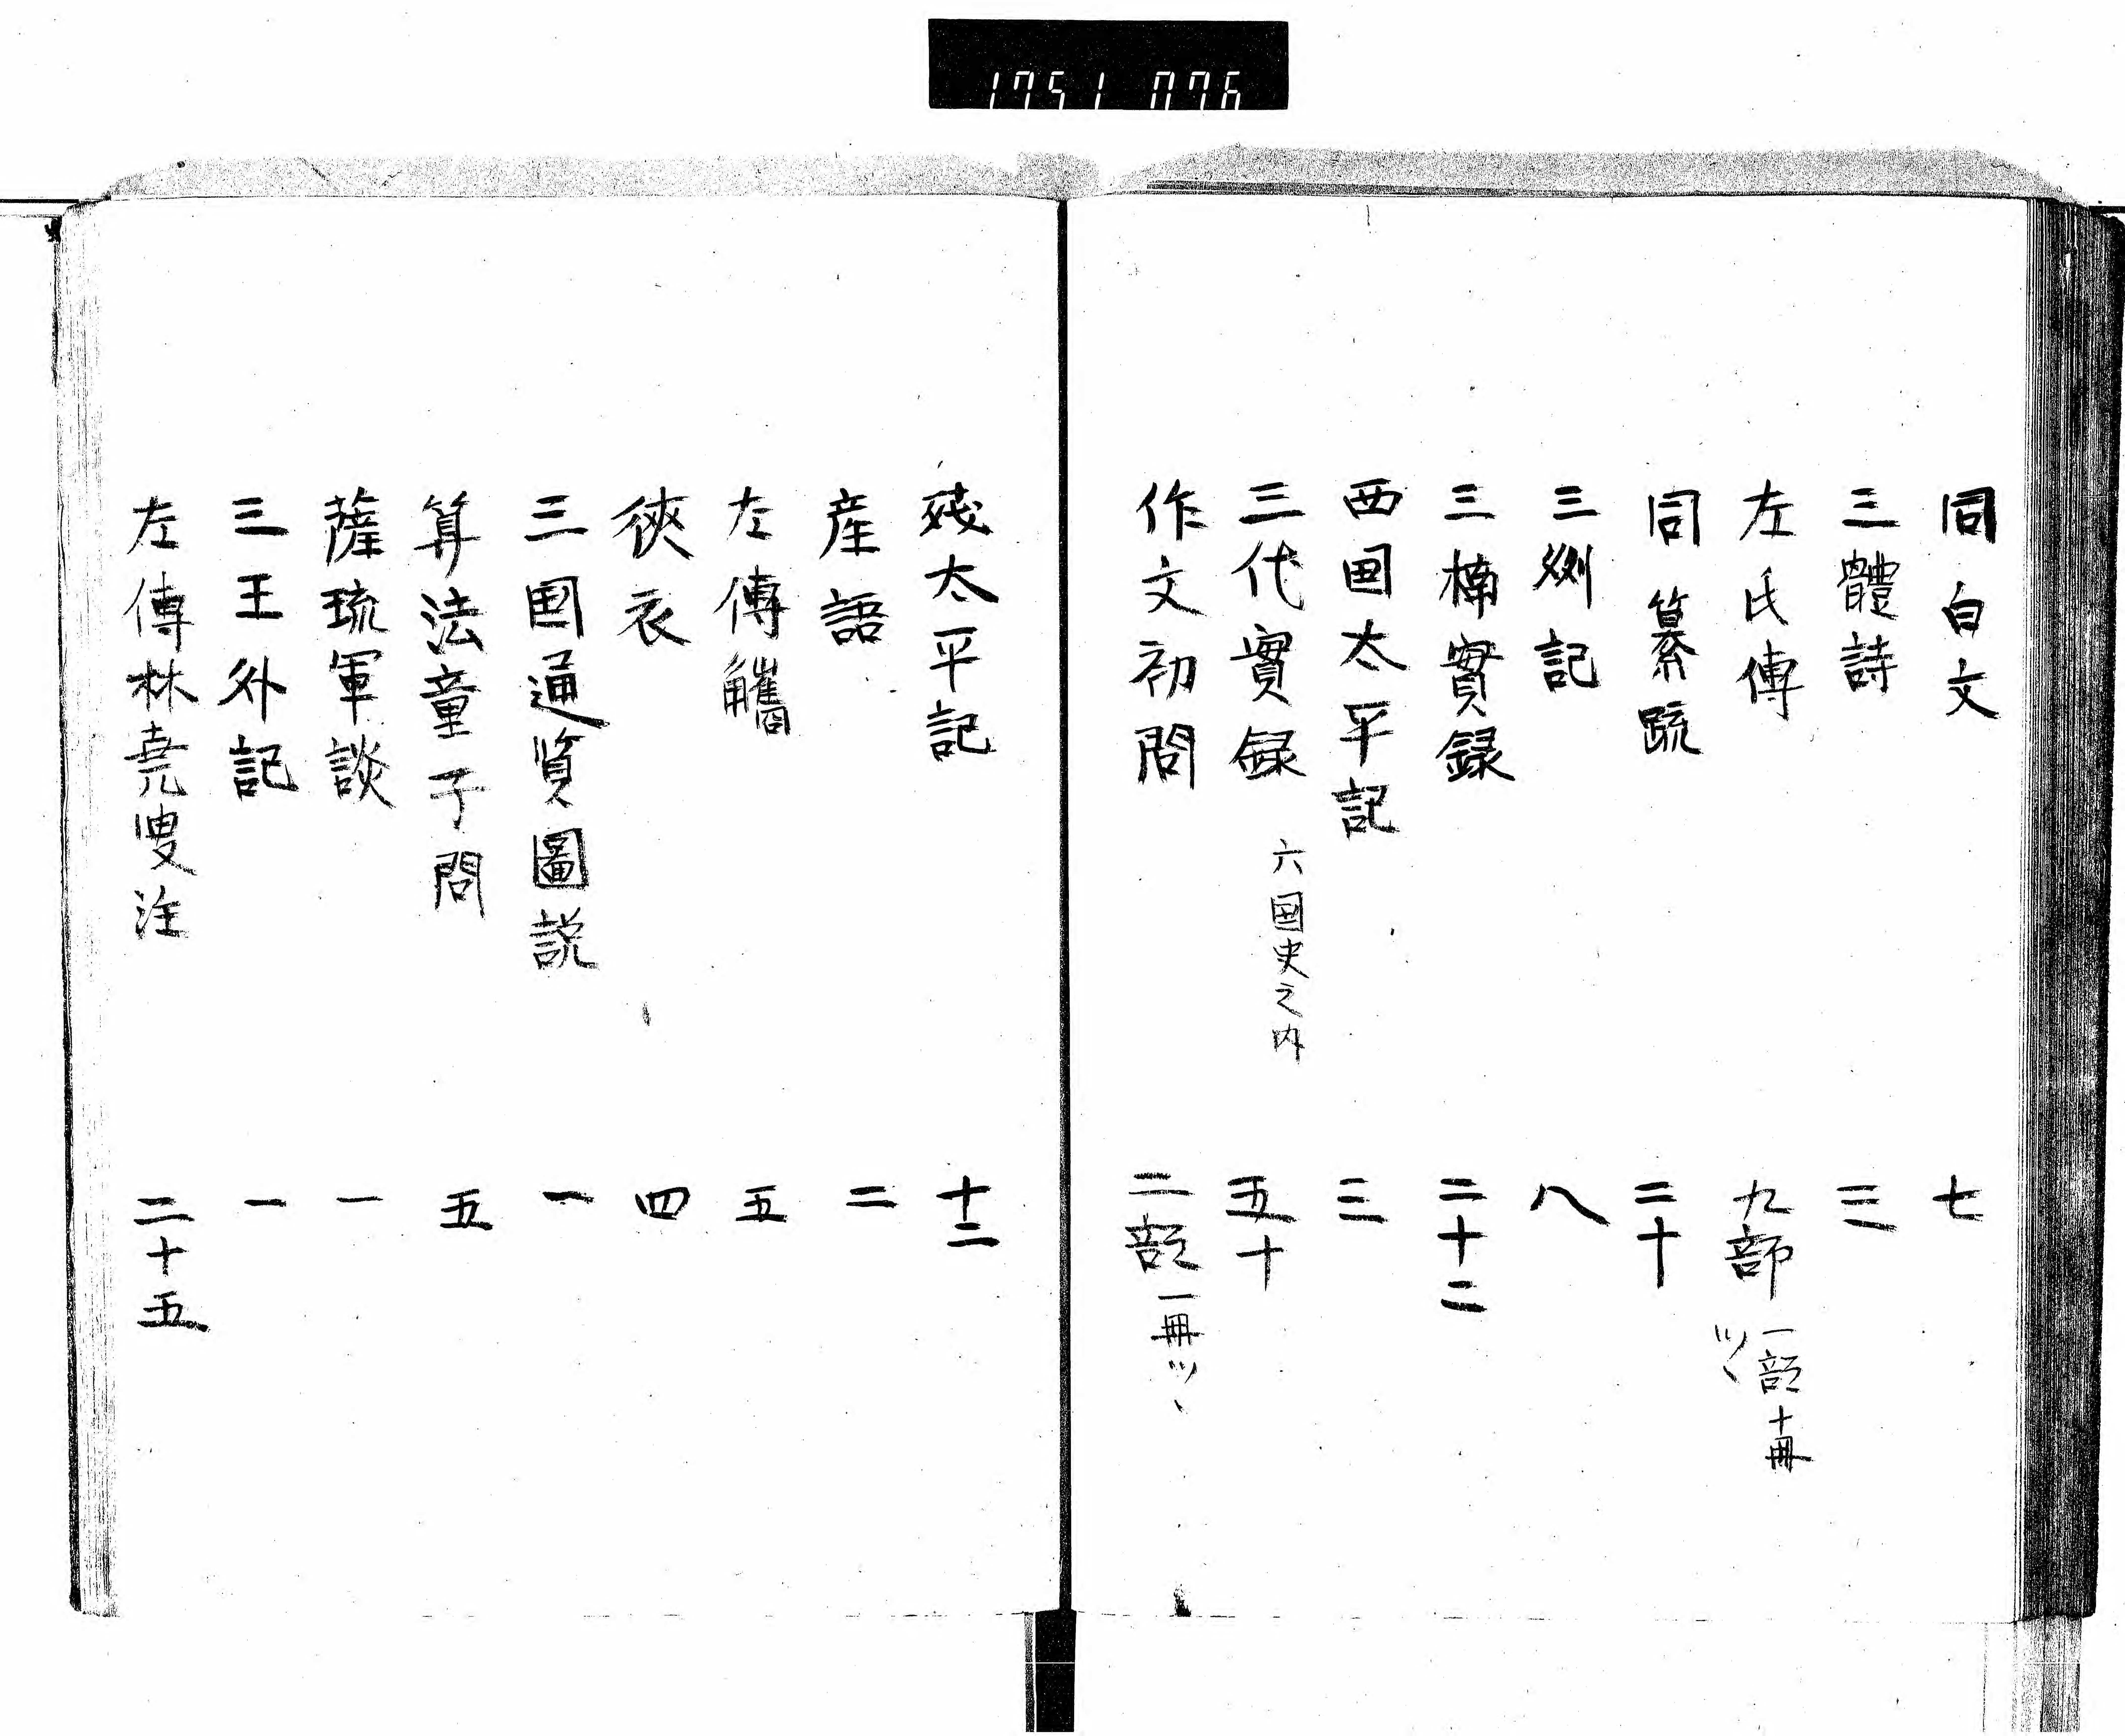 1751 076
同白文 七
三體詩 三
左氏傳 九部 一部十冊ツヽ
同纂疏 二十
三刕記 八
三楠實録 二十二
西国太平記 三
三代實録 六国史之内 五十
作文初問 二部 一冊ツヽ
残太平記 十二
産語 二
左傳觿 五
狹衣 四
三国通覧圖説 一
算法童子問 五
薩琉軍談 一
三王外記 一
左傳林堯叟注 二十五